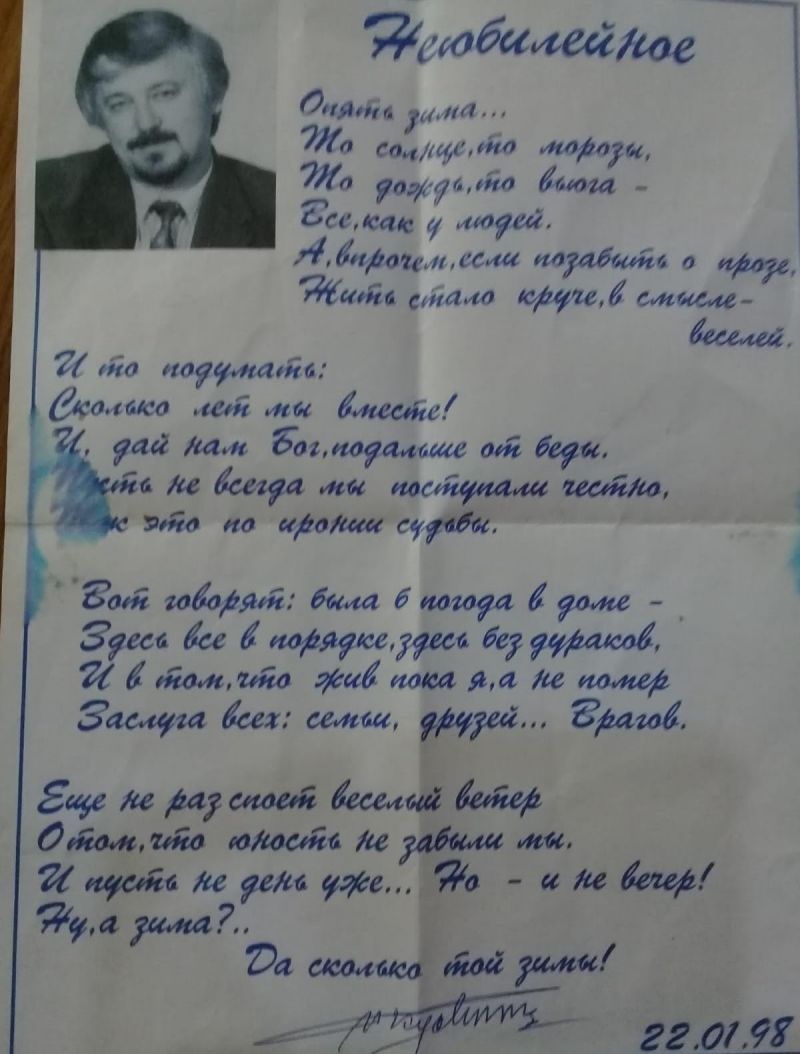 Неюбилейное
Опять зима...
То солнце,то морозы,
То дождь,то вьюга -
Все,как у людей.
А,впрочем,если позабыть о прозе,
Жить стало круче,в смысле-
веселей.
И то подумать:
Сколько лет мы вместе!
И, дай нам Бог,подальше от беды.
Пусть не всегда мы поступали честно,
Так это по иронии судьбы.
Вот говорят: была б погода в доме -
Здесь все в порядке,здесь без дураков,
И в том,что жив пока я,а не помер
Заслуга всех: семьи, друзей... Врагов.
Еще не раз споет веселый ветер
О том,что юность не забыли мы.
И пусть не день уже... Но - и не вечер!
Ну,а зима?..
Да сколько той зимы!
22.01.98